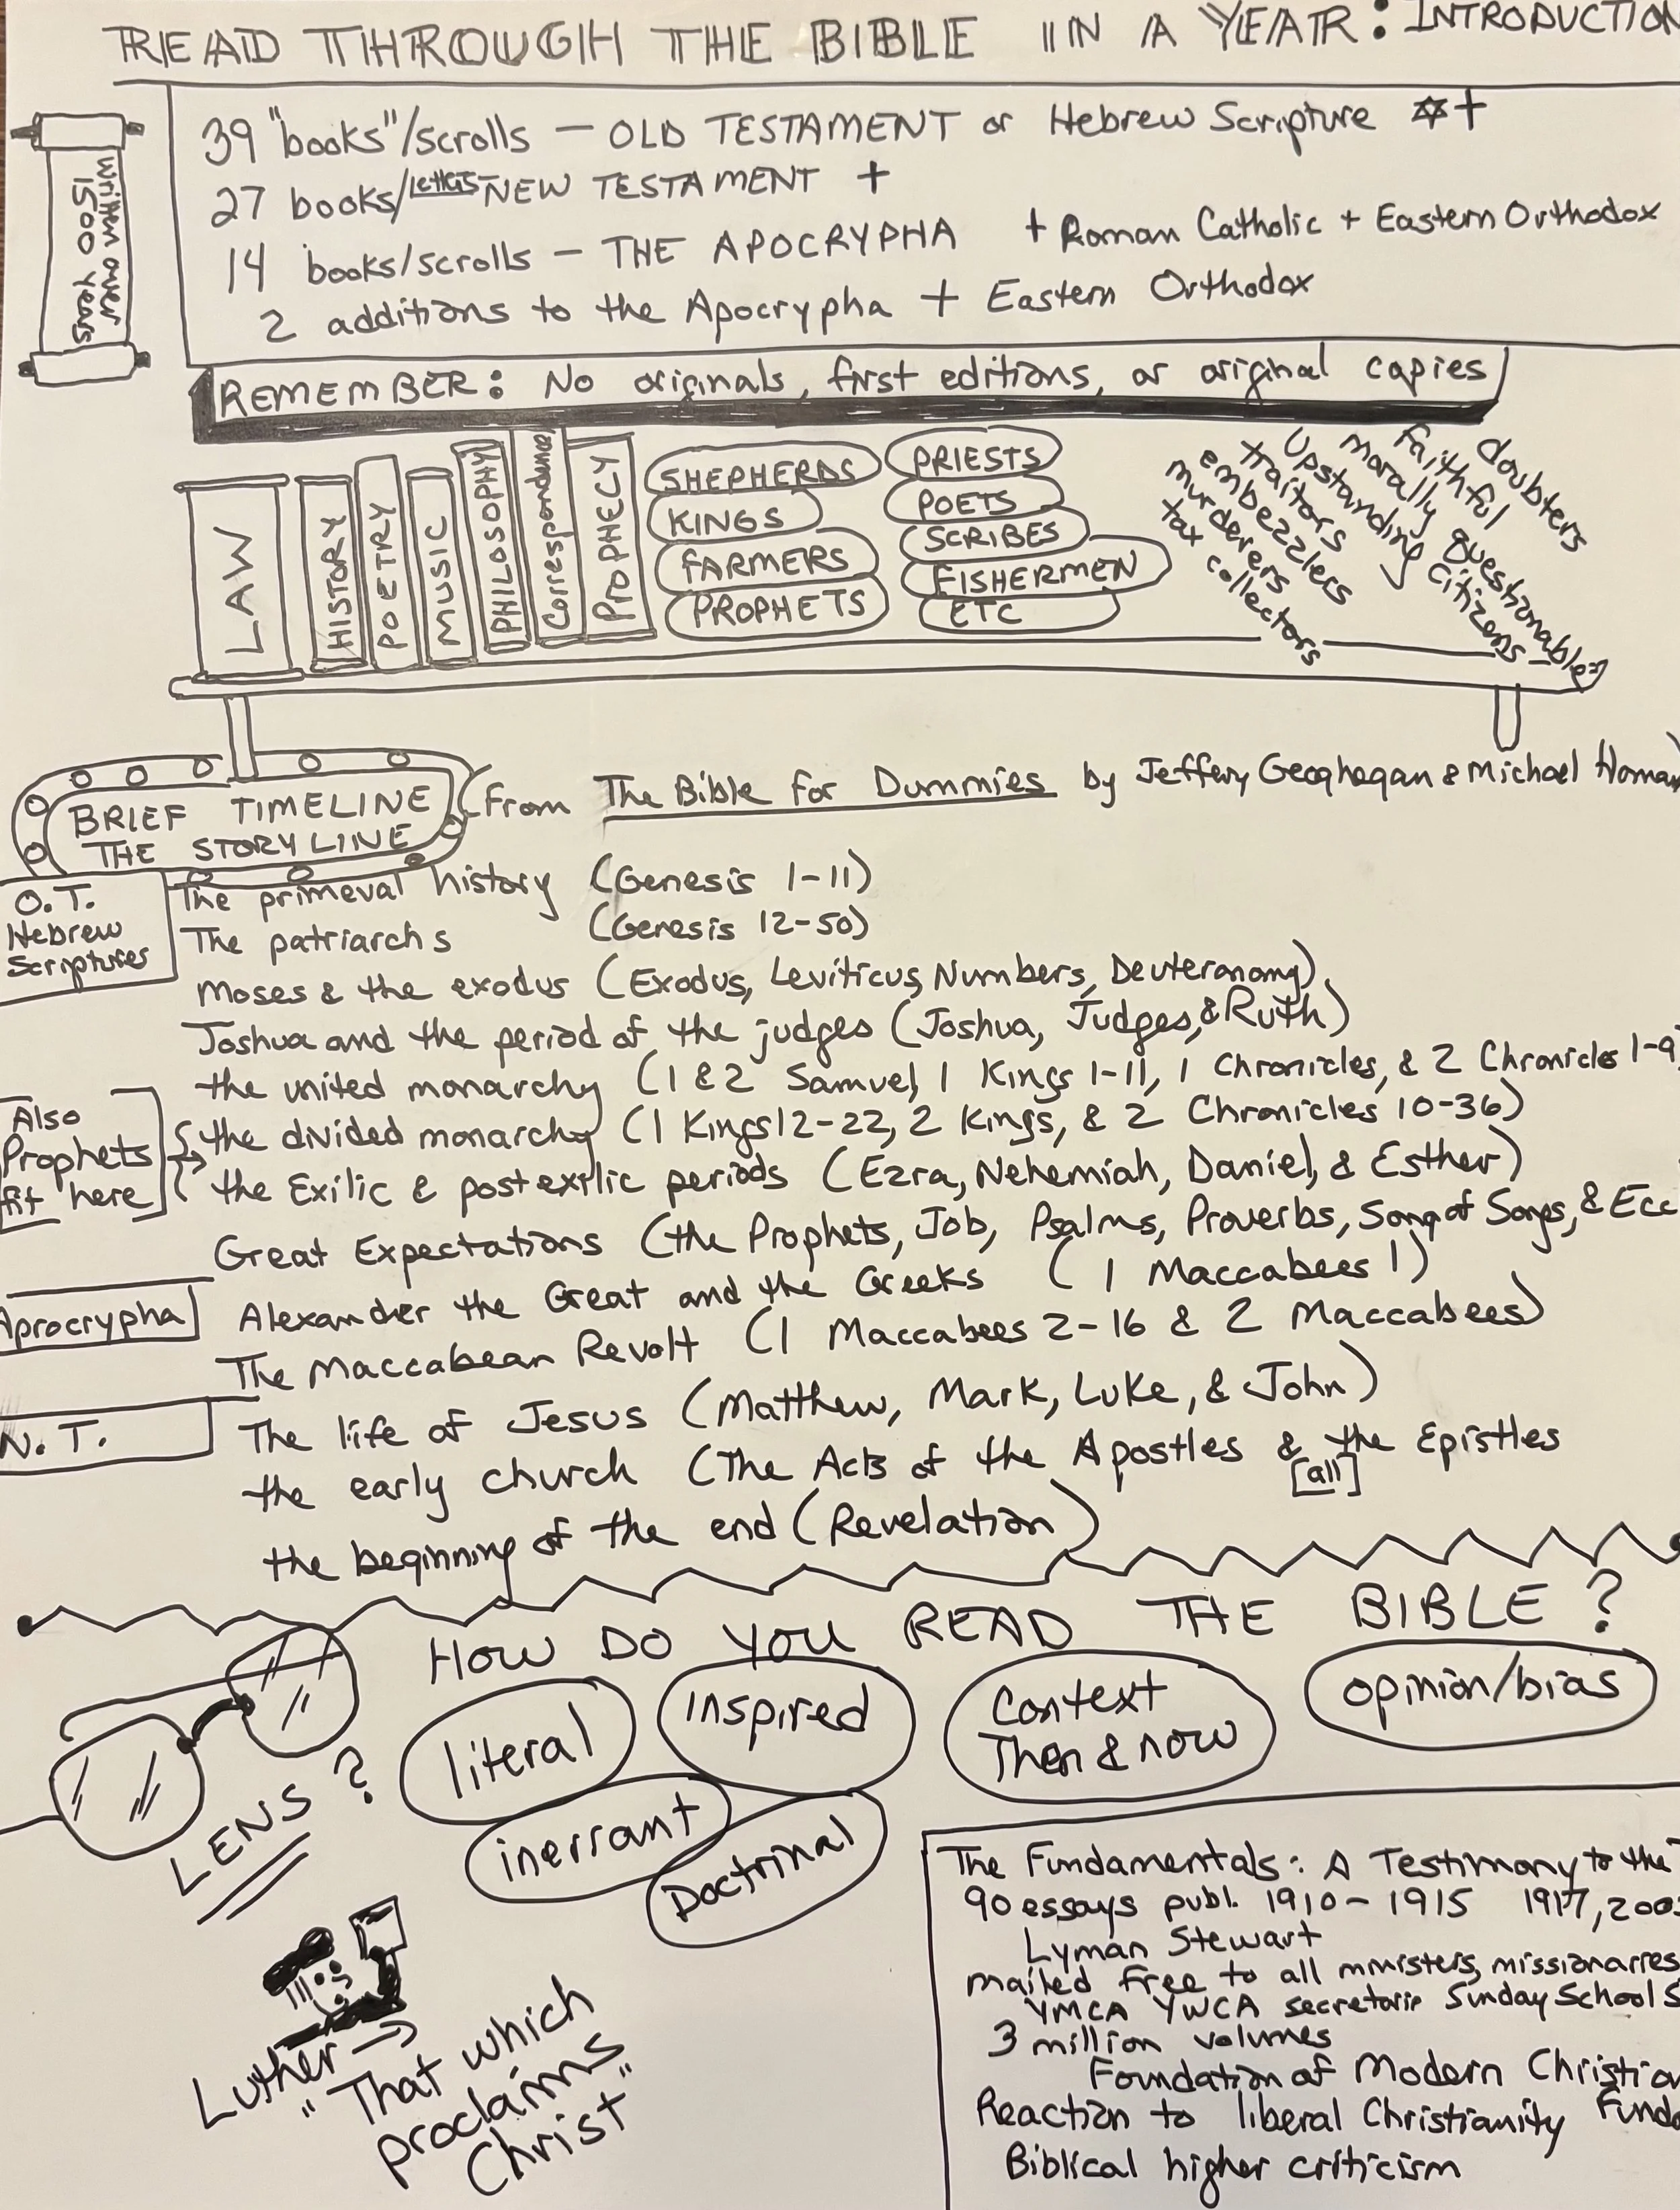 READ THROUGH THE BIBLE IN A YEAR: INTRODUCTION
Written over
1500 years
39 "books"/scrolls — OLD TESTAMENT or Hebrew Scripture ✡ +
27 books/Letters NEW TESTAMENT +
14 books/scrolls — THE APOCRYPHA + Roman Catholic + Eastern Orthodox
2 additions to the Apocrypha + Eastern Orthodox
REMEMBER: No originals, first editions, or original copies
LAW
HISTORY
POETRY
MUSIC
PHILOSOPHY
Correspondence
PROPHECY
SHEPHERDS
KINGS
FARMERS
PROPHETS
PRIESTS
POETS
SCRIBES
FISHERMEN
ETC
doubters
faithful
morally questionable
Upstanding citizens
traitors
embezzlers
murderers
tax collectors
BRIEF TIMELINE
THE STORY LINE
(from The Bible for Dummies by Jeffery Geoghagan & Michael Homan)
O.T.
Hebrew
Scriptures
The primeval history (Genesis 1-11)
The patriarchs (Genesis 12-50)
Moses & the exodus (Exodus, Leviticus, Numbers, Deuteronomy)
Joshua and the period of the judges (Joshua, Judges, & Ruth)
the united monarchy (1 & 2 Samuel, 1 Kings 1-11, 1 Chronicles, & 2 Chronicles 1-9)
Also
Prophets
fit here
the divided monarchy (1 Kings 12-22, 2 Kings, & 2 Chronicles 10-36)
the Exilic & postexilic periods (Ezra, Nehemiah, Daniel, & Esther)
Great Expectations (the Prophets, Job, Psalms, Proverbs, Song of Songs, & Ecc
Aprocrypha
Alexander the Great and the Greeks (1 Maccabees 1)
The Maccabean Revolt (1 Maccabees 2-16 & 2 Maccabees)
N.T.
The life of Jesus (Matthew, Mark, Luke, & John)
the early church (The Acts of the Apostles & the Epistles
[all]
the beginning of the end (Revelation)
HOW DO YOU READ THE BIBLE?
LENS?
literal
inspired
Context
Then & now
opinion/bias
inerrant
Doctrinal
Luther →
"That which
proclaims
Christ"
The Fundamentals: A Testimony to the
90 essays publ. 1910-1915 1917, 200
Lyman Stewart
mailed free to all ministers, missionarres
YMCA YWCA secretarie Sunday School S
3 million volumes
Foundation of Modern Christian
Reaction to liberal Christianity Funda
Biblical higher criticism